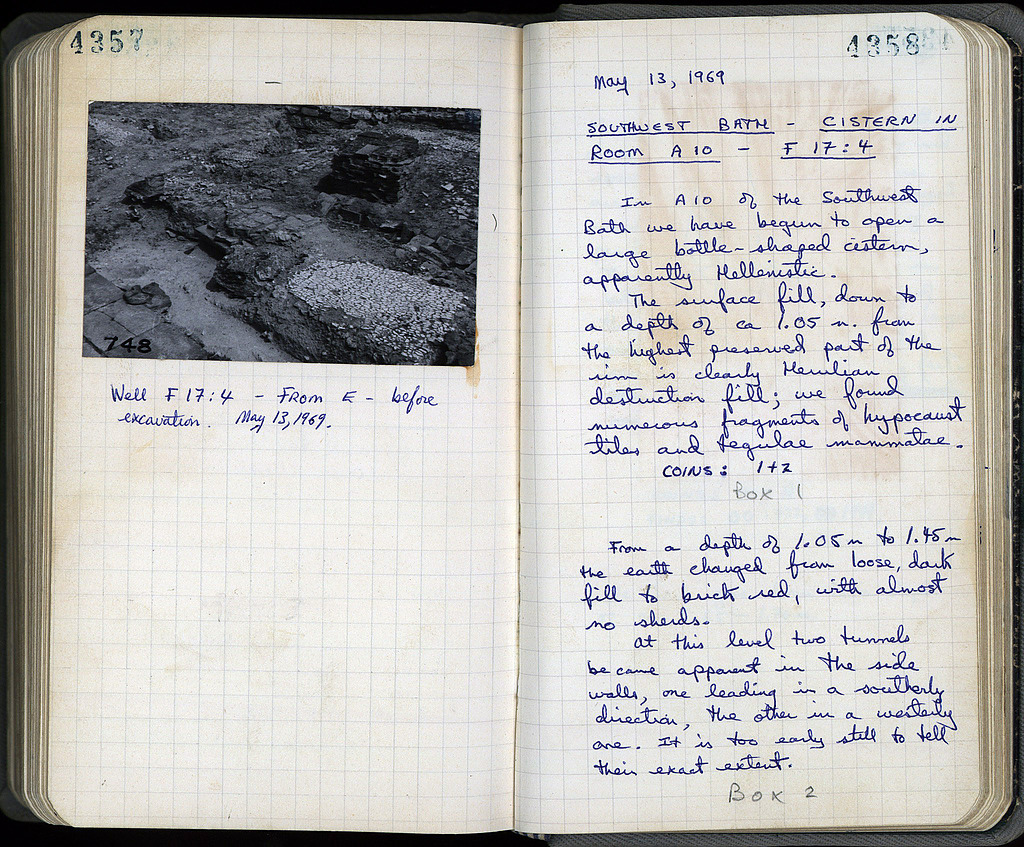 4357
748
Well F 17:4 - From E - before
excavation. May 13, 1969.
4358
May 13, 1969
SOUTHWEST BATH - CISTERN IN
ROOM A 10 - F 17:4
In A 10 of the Southwest
Bath we have begun to open a
large bottle-shaped cistern,
apparently Hellenistic.
The surface fill, down to
a depth of ca 1.05 m. from
the highest preserved part of the
rim is clearly Herulian
destruction fill; we found
numerous fragments of hypocaust
tiles and tegulae mammatae.
COINS: 1+2
Box 1
From a depth of 1.05 m to 1.45 m
the earth changed from loose, dark
fill to brick red, with almost
no sherds.
At this level two tunnels
became apparent in the side
walls, one leading in a southerly
direction, the other in a westerly
one. It is too early still to tell
their exact extent.
Box 2